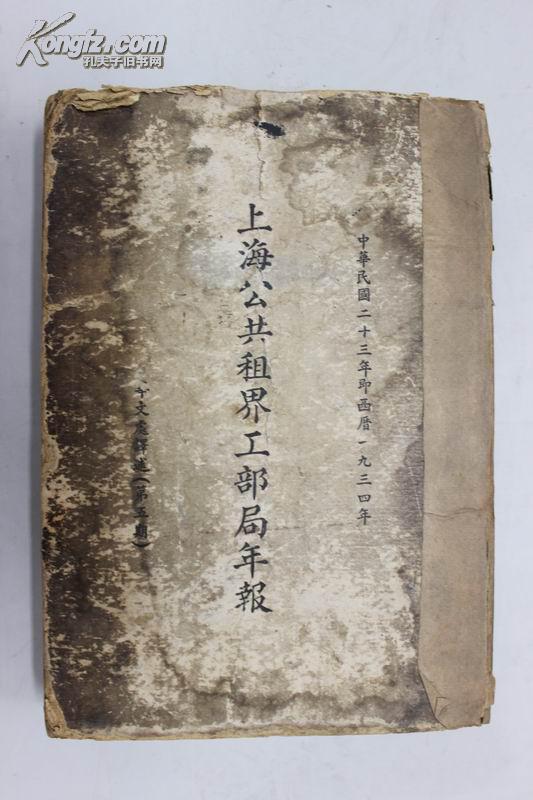 Kongfz.com
孔夫子旧书网
中華民國二十三年即西曆一九三四年
上海公共租界工部局年報
華文處譯述（第五期）